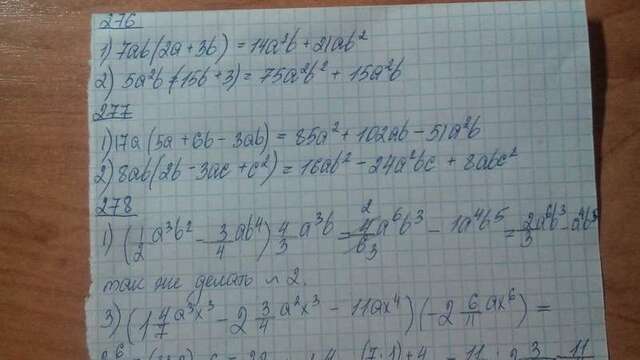 276
1) 7ab(2a+3b) = 14a²b + 21ab²
2) 5a²b (15b+3) = 75a²b² + 15a²b
277
1) 17a (5a+6b-3ab) = 85a² + 102ab - 51a²b
2) 8ab(2b-3ac+c²) = 16ab² - 24a²bc + 8abc²
278
1) (1/2 a³b² - 3/4 ab⁴) 4/3 a³b = 4/6 2/3 a⁶b³ - 1a⁴b⁵ = 2/3 a⁶b³ - a⁴b⁵
так же делать и 2.
3) (1 4/7 a³x³ - 2 3/4 a²x³ - 11ax⁴)(-2 6/11 ax⁶) =